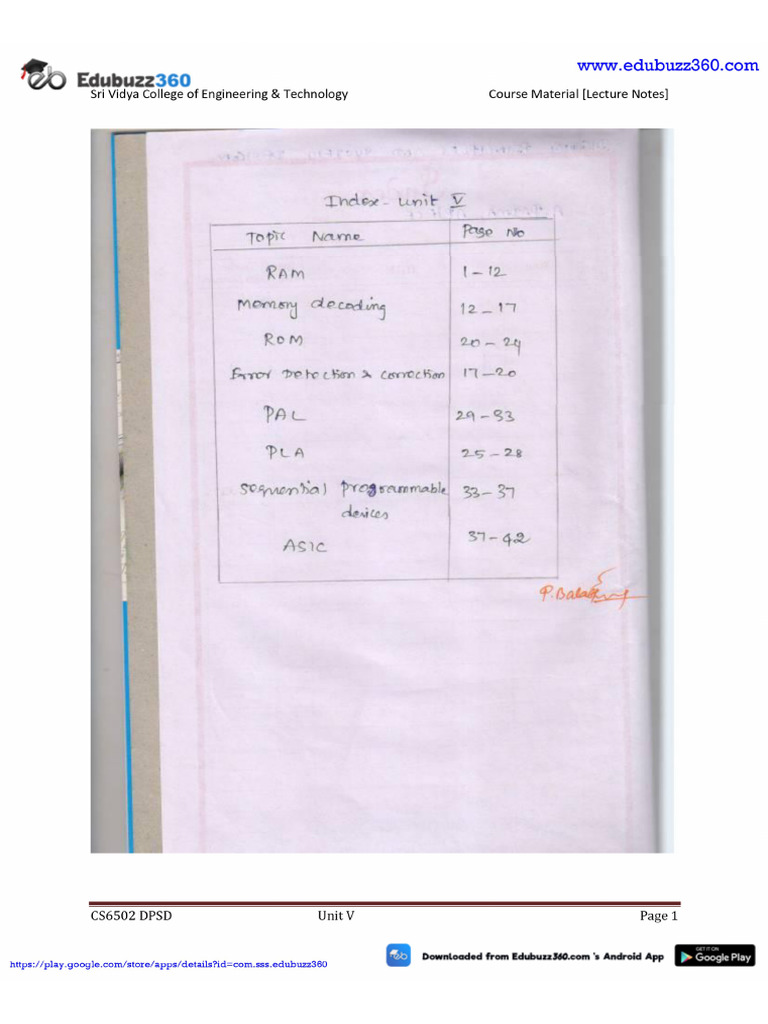 www.edubuzz360.com
Edubuzz360
Sri Vidya College of Engineering & Technology Course Material [Lecture Notes]
Index - Unit V
Topic Name Page No
RAM 1-12
Memory decoding 12-17
ROM 20-24
Error Detection & correction 17-20
PAL 29-33
PLA 25-28
Sequential programmable 33-37
devices
ASIC 37-42
CS6502 DPSD Unit V Page 1
Downloaded from Edubuzz360.com 's Android App GET IT ON Google Play
https://play.google.com/store/apps/details?id=com.sss.edubuzz360